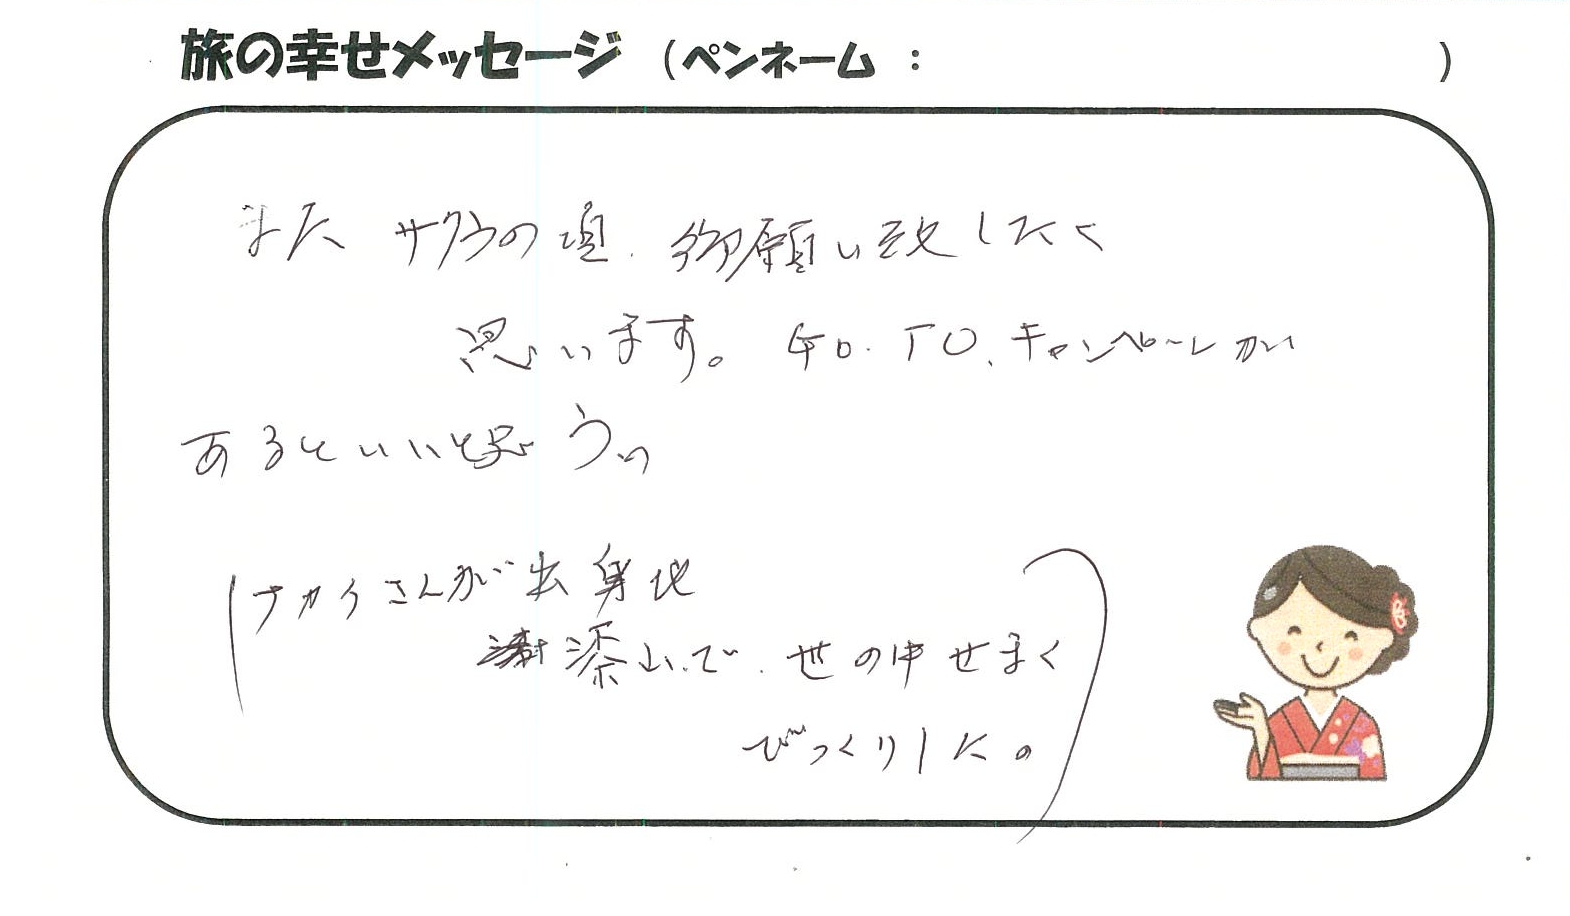 旅の幸せメッセージ (ペンネーム : )
また サクラの頃、御願い致したく
思います。 GO. TO. キャンペーンが
あるといいと思う。
(ナカイさんが出身地
漆山で、世の中せまく
びっくりした。)